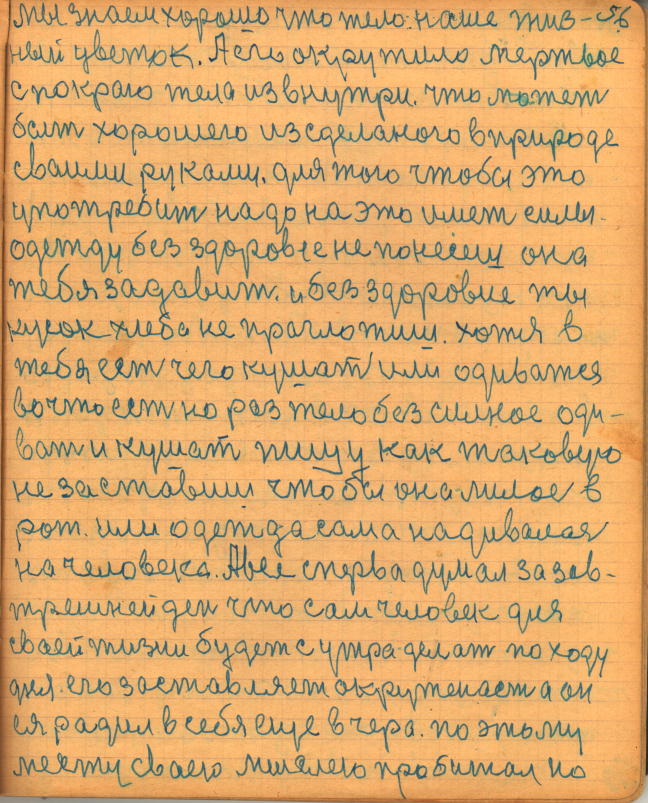 мы знаем хорошо что тело. наше жив- 56
ный цветок. А его окружило мертвое
с покраю тела из внутри. что может
быт хорошего из сделаного в природе
сваими руками. для того чтобы это
употребит надо на это имет силы.
одежду без здоровие не понесиш она
тебя задавит. и без здоровие ты
кусок хлеба не праглотиш. хотя в
тебя ест чего кушат или одиватся
во что ест но раз тело без силное оди-
ват и кушат пищу как таковую
не заставиш чтобы она лилас в
рот. или одежда сама надивалас
на человека. А все сперва думал за зав-
трешней ден что сам человек для
сваей жизни будет с утра делат по ходу
дня. его заставляет окружност а он
ся радил в себя еще вчера. по этому
месту сваею мыслею пробижал но